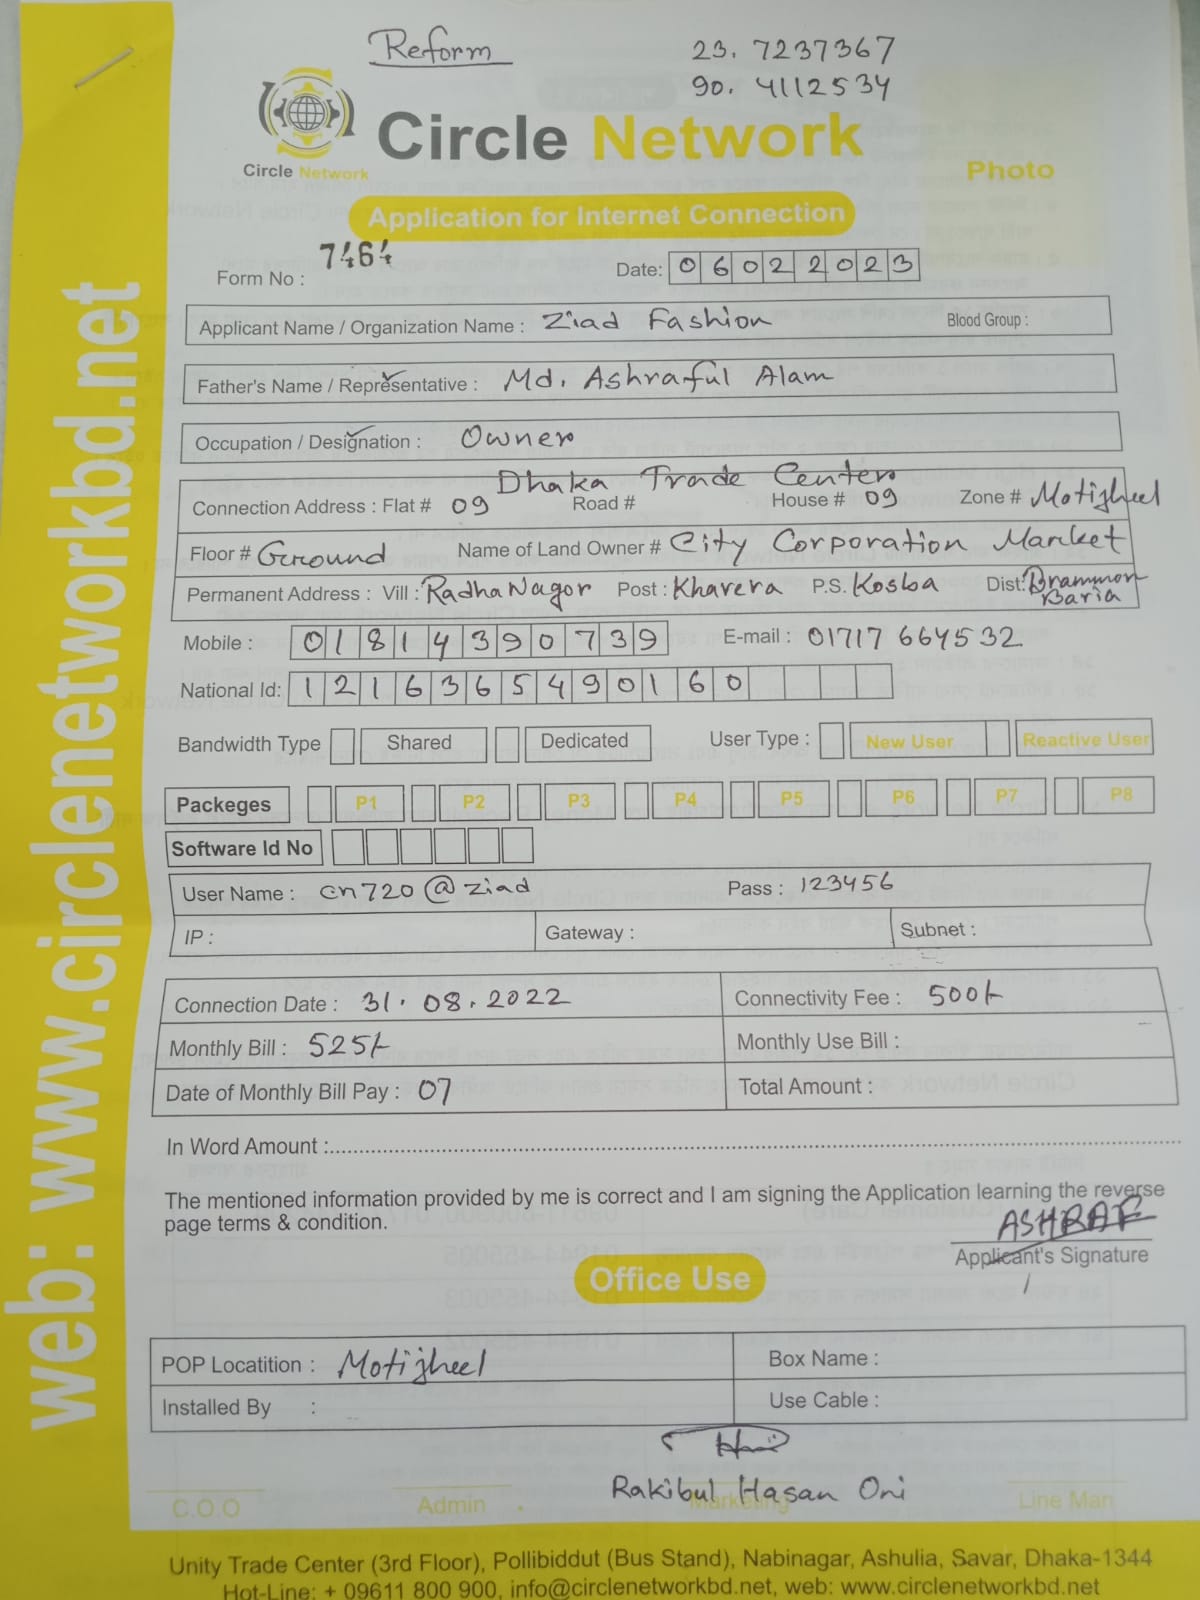 Reform
23.7237367
90.4112534
Circle Network
Circle Network
Photo
Application for Internet Connection
Form No : 7464
Date: 06022023
Applicant Name / Organization Name : Ziad Fashion Blood Group :
Father's Name / Representative : Md. Ashraful Alam
Occupation / Designation : Owner
Dhaka Trade Center
Connection Address : Flat # 09 Road # House # 09 Zone # Motijheel
Floor # Ground Name of Land Owner # City Corporation Market
Permanent Address : Vill : RadhaNagor Post : Kharera P.S. Kosba Dist: Brammon Baria
Mobile : 01814390739 E-mail : 01717 664532
National Id: 1216365490160
Bandwidth Type Shared Dedicated User Type : New User Reactive User
Packeges P1 P2 P3 P4 P5 P6 P7 P8
Software Id No
User Name : cn720@ziad Pass : 123456
IP : Gateway : Subnet :
Connection Date : 31.08.2022 Connectivity Fee : 500/-
Monthly Bill : 525/- Monthly Use Bill :
Date of Monthly Bill Pay : 07 Total Amount :
In Word Amount :
The mentioned information provided by me is correct and I am signing the Application learning the reverse
page terms & condition.
ASHRAF
Applicant's Signature
Office Use
POP Locatition : Motijheel Box Name :
Installed By : Use Cable :
Rakibul Hasan Oni
C.O.O Admin Marketing Line Man
Unity Trade Center (3rd Floor), Pollibiddut (Bus Stand), Nabinagar, Ashulia, Savar, Dhaka-1344
Hot-Line: + 09611 800 900, info@circlenetworkbd.net, web: www.circlenetworkbd.net
web: www.circlenetworkbd.net